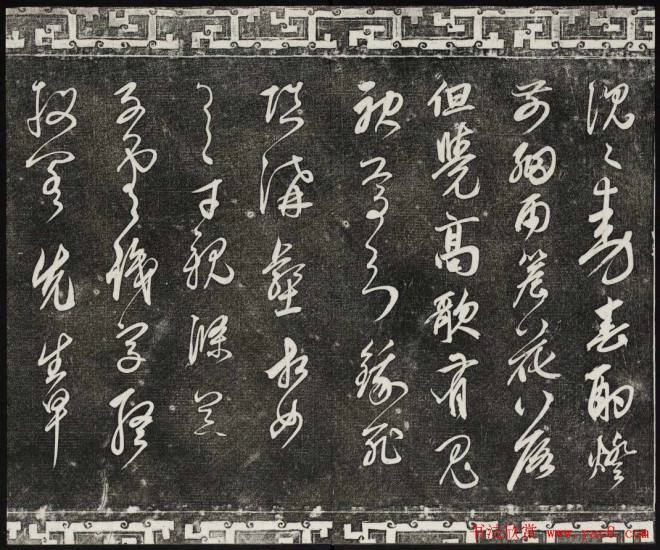 沉沉動春酌燈
前細雨簷花落
但覺高歌有鬼
神焉知餓死
填溝壑相如
逸才親滌器
子雲識字終
投閣先生早
书法欣赏 www.yac8.com